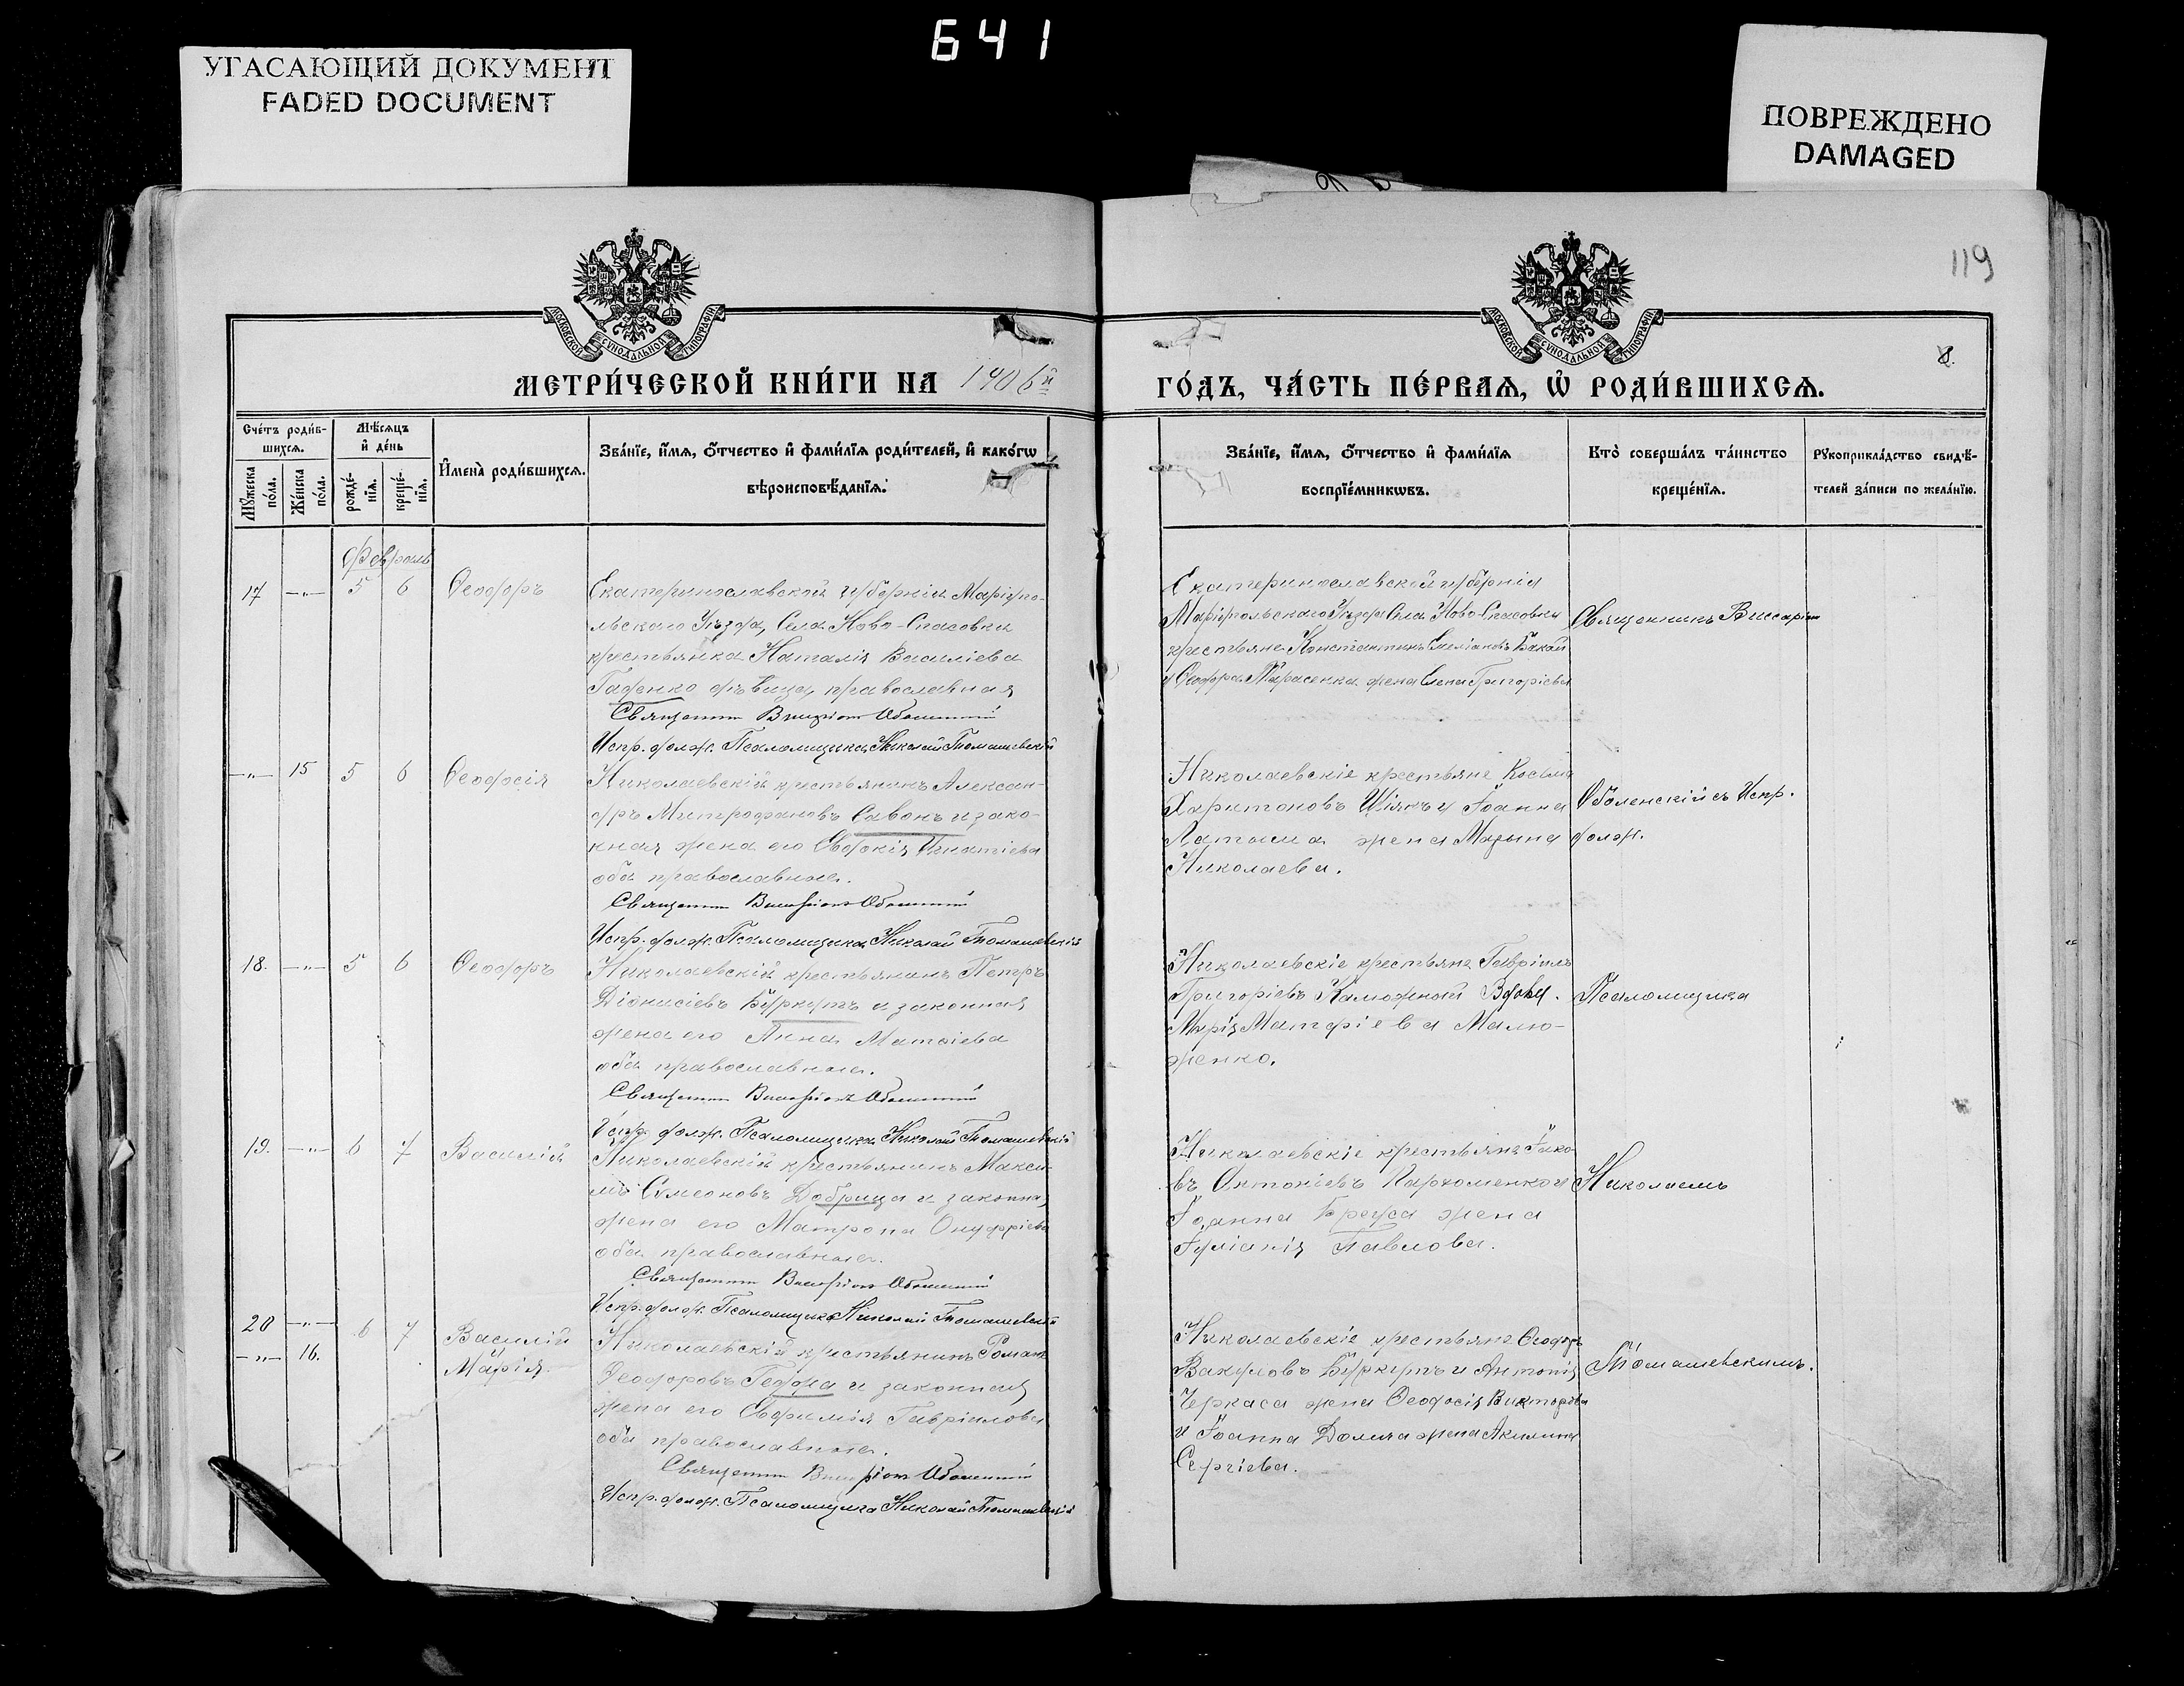 641
УГАСАЮЩИЙ ДОКУМЕНТ
FADED DOCUMENT
ПОВРЕЖДЕНО
DAMAGED
119
8.
МОСКОВСКОЙ СѴНОДАЛЬНОЙ ТИПОГРАФІИ
МОСКОВСКОЙ СѴНОДАЛЬНОЙ ТИПОГРАФІИ
МЕТРИ́ЧЕСКОЙ КНИ́ГИ НА 1906й
ГО́ДЪ, ЧА́СТЬ ПЕ́РВАѦ, Ѽ РОДИ́ВШИХСѦ.
Сче́тъ роди́в-
шихся.
Мѣ́сяцъ
и҆ де́нь
Му́жеска по́ла.
Же́нска по́ла.
рожде́-нїя.
креще́-нїя.
И҆мена̀ роди́вшихся.
Зва́нїе, и҆́мя, ѻ҆́тчество и҆ фами́лїя роди́телей, и҆ како́гѡ
вѣроисповѣ́данїя.
Зва́нїе, и҆́мя, ѻ҆́тчество и҆ фами́лїя
воспрїе́мникѡвъ.
Кто̀ соверша́лъ та́инство
креще́нїя.
Рꙋкоприкла́дство свидѣ́-
телей за́писи по жела́нїю.
Февраль
17 —„— 5 6 Ѳеодоръ
Екатеринославской губерніи Маріупо-
льскаго Уѣзда, Села Ново-Спасовки
крестьянка Наталія Василіева
Гаденко дѣвица, православная
Священникъ Виссаріонъ Оболенскій
Испр. долж. Псаломщика Николай Томашевскій
Екатеринославской губерніи
Маріупольскаго Уѣзда Села Ново-Спасовки
крестьяне Константинъ Емеліановъ Бакай
и Ѳеодора Тарасенка жена Елена Григоріева
Священникъ Виссаріон
—„— 15 5 6 Ѳеодосія
Николаевскій крестьянинъ Алексан-
дръ Митрофановъ Савонъ и зако-
ная жена его Евдокія Игнатіева
оба православные.
Священникъ Виссаріонъ Оболенскій
Испр. долж. Псаломщика Николай Томашевскій
Николаевскіе крестьяне Косьма
Харитоновъ Шіянъ и Іоанна
Латыша жена Марина
Николаева.
Оболенскій съ Испр.
долж.
18. —„— 5 6 Ѳеодоръ
Николаевскій крестьянинъ Петръ
Діонисіевъ Буркутъ и законная
жена его Анна Матѳіева
оба православные.
Священникъ Виссаріонъ Оболенскій
Испр. долж. Псаломщика Николай Томашевскій
Николаевскіе крестьяне Гавріилъ
Григоріевъ Калюжный Вдова.
Марія Матфіева Малю-
женко.
Псаломщика
19. —„— 6 7 Василій
Николаевскій крестьянинъ Макси-
мъ Симеоновъ Добрица и законная
жена его Матрона Онуфріева
оба православные.
Священникъ Виссаріонъ Оболенскій
Испр. долж. Псаломщика Николай Томашевскій
Николаевскіе крестьяне Іако-
въ Антоніевъ Пархоменко и
Іоанна Бруса жена
Іуліанія Павлова.
Николаемъ
20 —„— 6 7 Василій
—„— 16. Марія.
Николаевскій крестьянинъ Романъ
Ѳеодоровъ Гедда и законная
жена его Евфимія Гавріилова
оба православные.
Священникъ Виссаріонъ Оболенскій
Испр. долж. Псаломщика Николай Томашевскій
Николаевскіе крестьяне Ѳеодоръ
Вакуловъ Буркутъ и Антонія
Черкаса жена Ѳеодосія Викторова
и Іоанна Долича жена Акилина
Сергіева.
Томашевскимъ.